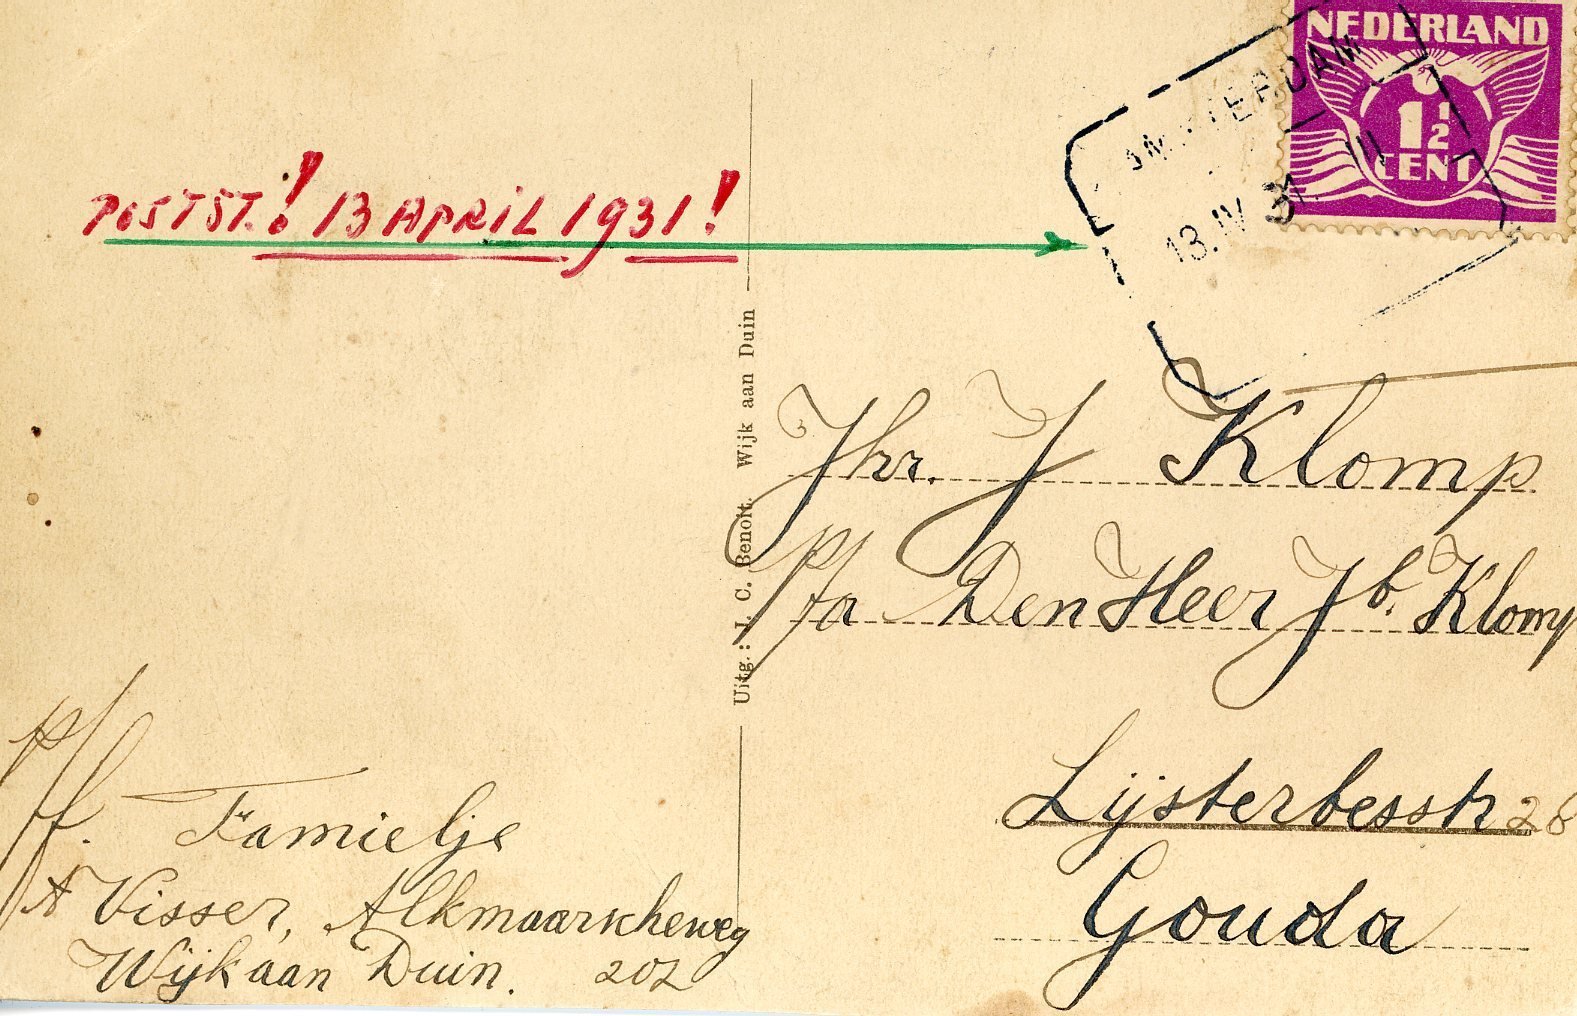 NEDERLAND
1 1/2
CENT
AMSTERDAM
13.IV 31 III
POSTST.! 13 APRIL 1931!
Uitg.: J. C. Benoit. Wijk aan Duin
Jhr. J Klomp
p/a Den Heer Jb. Klomp
Lijsterbesstr 28
Gouda
p/f. Famielje
A Visser, Alkmaarscheweg
Wijk aan Duin. 202